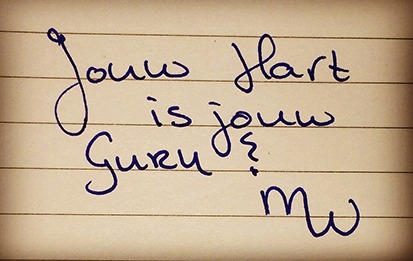 Jouw Hart
is jouw
Guru &
MW